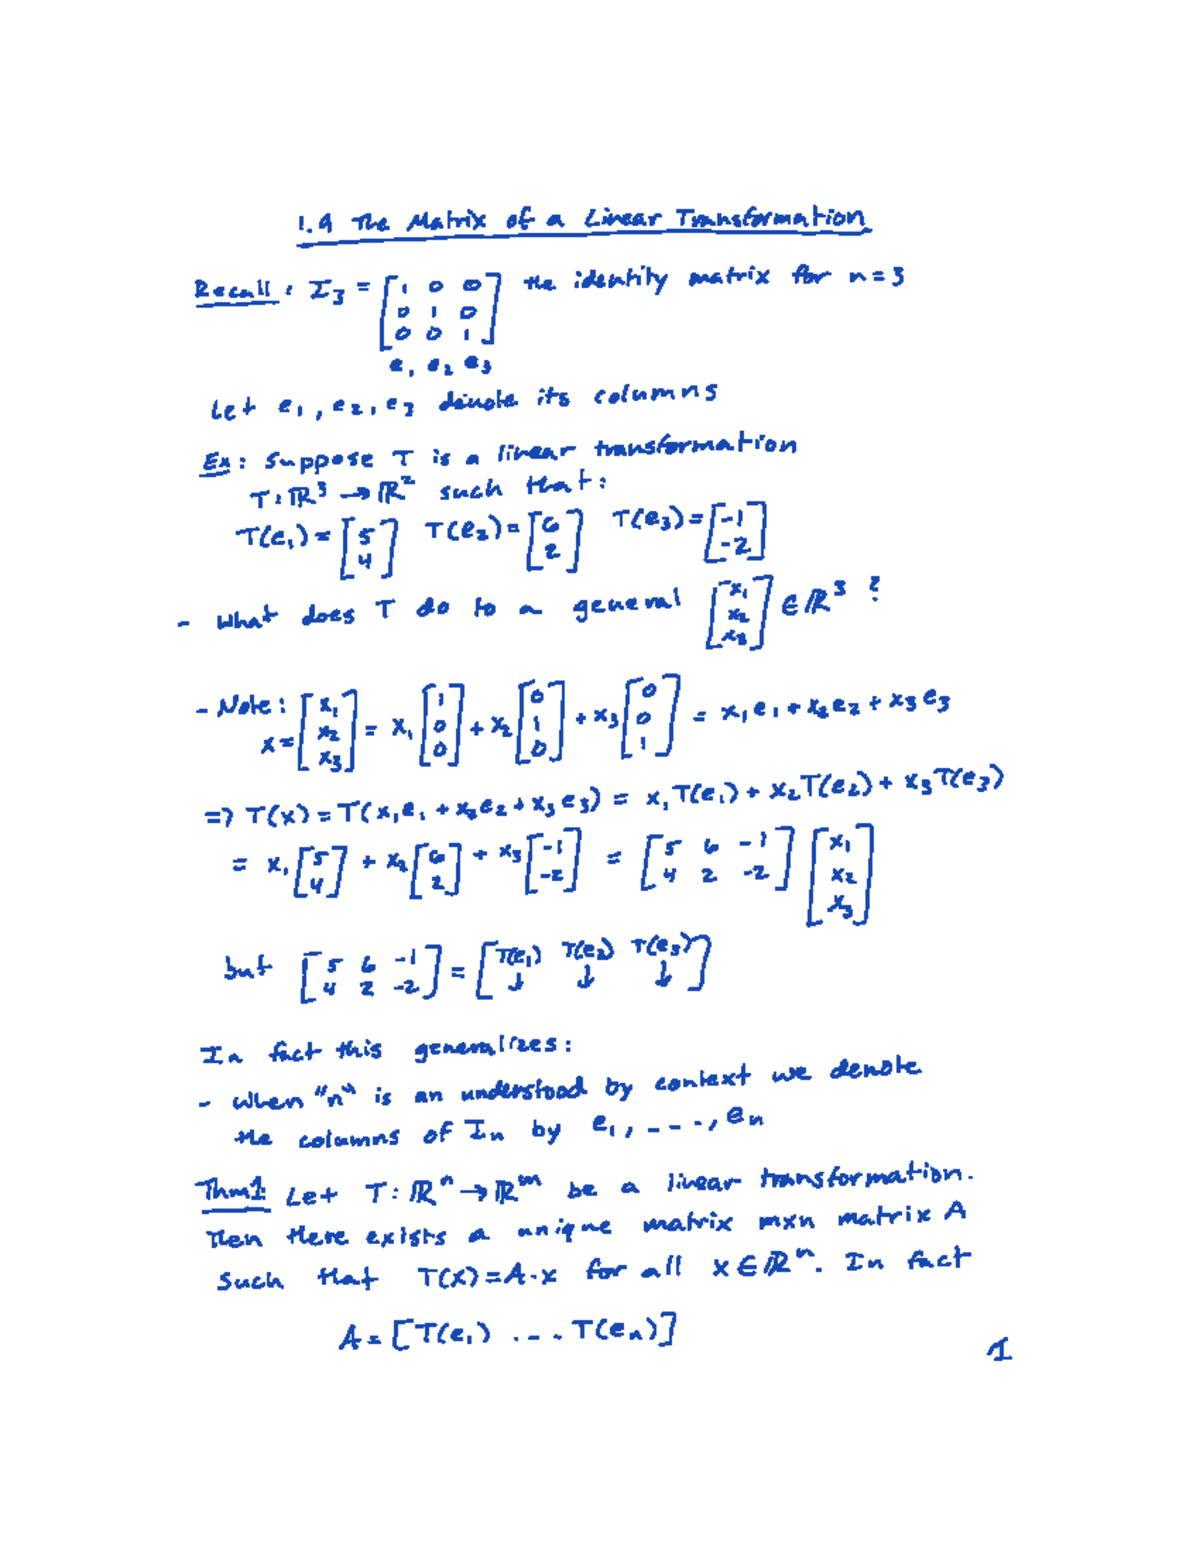 1.9 The Matrix of a Linear Transformation
Recall: I₃ = [1 0 0; 0 1 0; 0 0 1] the identity matrix for n=3
e₁ e₂ e₃
Let e₁, e₂, e₃ denote its columns
Ex: Suppose T is a linear transformation
T: ℝ³ → ℝ² such that:
T(e₁) = [5; 4] T(e₂) = [6; 2] T(e₃) = [-1; -2]
- What does T do to a general [x₁; x₂; x₃] ∈ ℝ³ ?
- Note: x = [x₁; x₂; x₃] = x₁[1; 0; 0] + x₂[0; 1; 0] + x₃[0; 0; 1] = x₁e₁ + x₂e₂ + x₃e₃
=> T(x) = T(x₁e₁ + x₂e₂ + x₃e₃) = x₁T(e₁) + x₂T(e₂) + x₃T(e₃)
= x₁[5; 4] + x₂[6; 2] + x₃[-1; -2] = [5 6 -1; 4 2 -2][x₁; x₂; x₃]
but [5 6 -1; 4 2 -2] = [T(e₁) T(e₂) T(e₃); ↓ ↓ ↓]
In fact this generalizes:
- when "n" is an understood by context we denote
the columns of Iₙ by e₁, ..., eₙ
Thm1: Let T: ℝⁿ → ℝᵐ be a linear transformation.
Then there exists a unique matrix mxn matrix A
such that T(x) = A·x for all x ∈ ℝⁿ. In fact
A = [T(e₁) ... T(eₙ)]
1